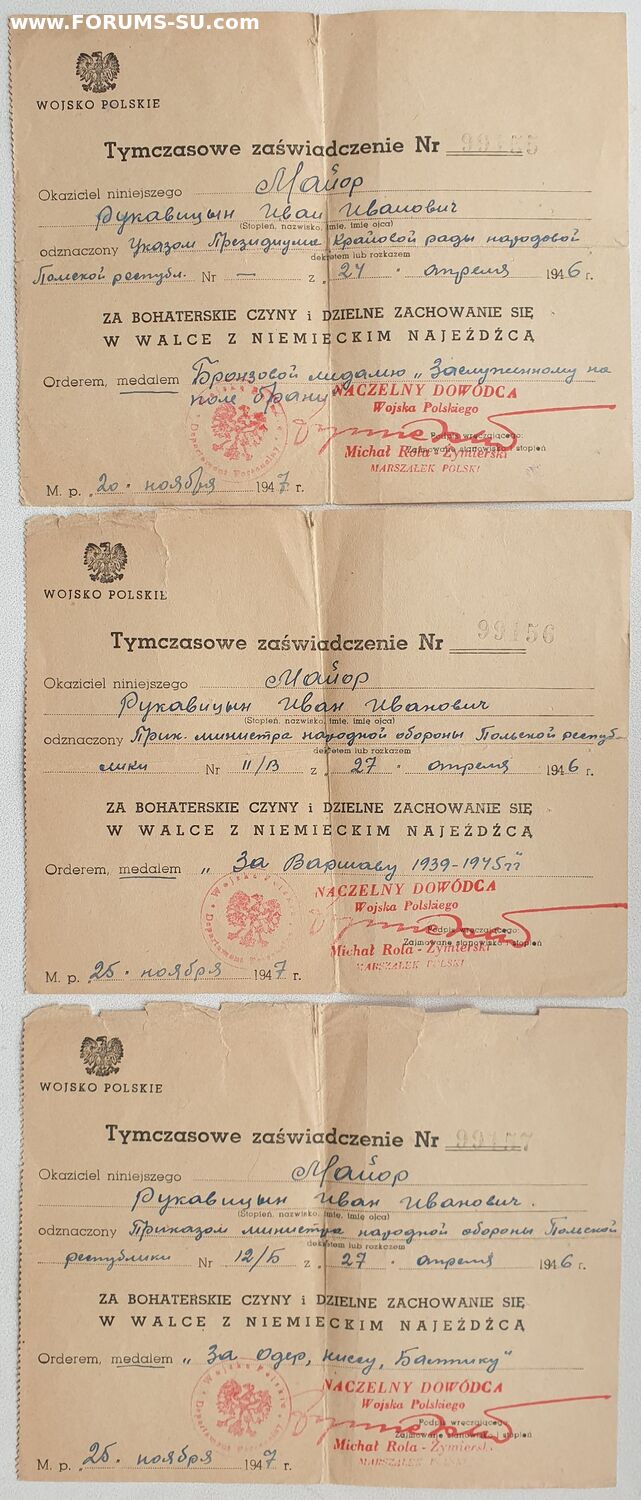 www.FORUMS-SU.com
WOJSKO POLSKIE
Tymczasowe zaświadczenie Nr
Okaziciel niniejszego Майор
Рукавицын Иван Иванович
(Stopień, nazwisko, imię, imię ojca)
odznaczony Указом Президиума Крайовой рады народовой
dekretem lub rozkazem
Польской республ. Nr — z „24" апреля 1946 r.
ZA BOHATERSKIE CZYNY i DZIELNE ZACHOWANIE SIĘ
W WALCE Z NIEMIECKIM NAJEŹDŹCĄ
Orderem, medalem Бронзовой медалью „Заслуженному на
поле брани"
NACZELNY DOWÓDCA
Wojska Polskiego
Podpis wręczającego:
Zajmowane stanowisko i stopień
Michał Rola - Żymierski
MARSZAŁEK POLSKI
Departament Personalny
M. p. „20" ноября 1947 r.
WOJSKO POLSKIE
Tymczasowe zaświadczenie Nr 99156
Okaziciel niniejszego Майор
Рукавицын Иван Иванович
(Stopień, nazwisko, imię, imię ojca)
odznaczony Прик. министра народной обороны Польской респуб-
dekretem lub rozkazem
лики Nr 11/В z „27" апреля 1946 r.
ZA BOHATERSKIE CZYNY i DZIELNE ZACHOWANIE SIĘ
W WALCE Z NIEMIECKIM NAJEŹDŹCĄ
Orderem, medalem „За Варшаву 1939-1945г"
NACZELNY DOWÓDCA
Wojska Polskiego
Podpis wręczającego:
Zajmowane stanowisko i stopień
Michał Rola - Żymierski
MARSZAŁEK POLSKI
Wojsko Polskie
Departament
M. p. „25" ноября 1947 r.
WOJSKO POLSKIE
Tymczasowe zaświadczenie Nr
Okaziciel niniejszego Майор
Рукавицын Иван Иванович.
(Stopień, nazwisko, imię, imię ojca)
odznaczony Приказом министра народной обороны Польской
dekretem lub rozkazem
республики Nr 12/Б z „27" апреля 1946 r.
ZA BOHATERSKIE CZYNY i DZIELNE ZACHOWANIE SIĘ
W WALCE Z NIEMIECKIM NAJEŹDŹCĄ
Orderem, medalem „За Одер, Ниссу, Балтику"
NACZELNY DOWÓDCA
Wojska Polskiego
Podpis wręczającego:
Zajmowane stanowisko i stopień
Michał Rola - Żymierski
MARSZAŁEK POLSKI
Wojsko Polskie
Departament Personalny
M. p. „25" ноября 1947 r.